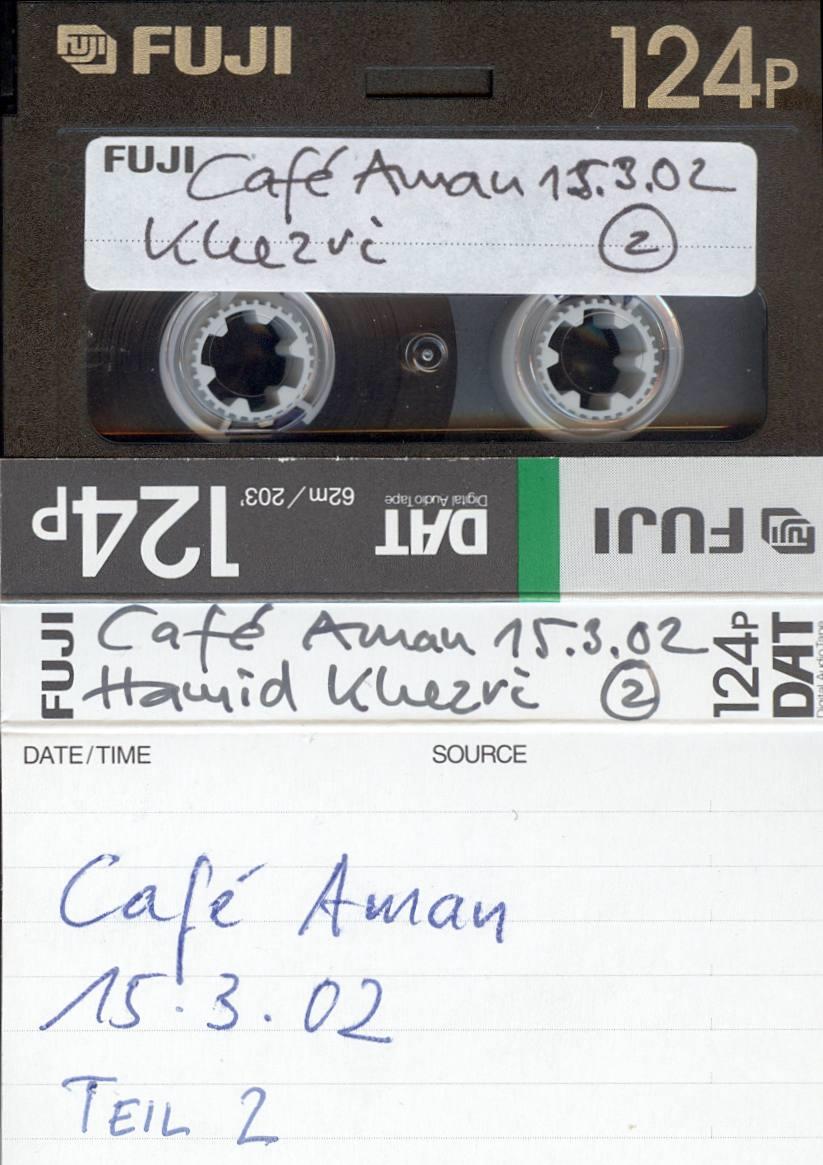 FUJI FUJI 124P
FUJI Café Aman 15.3.02
Khezri 2
124P 62m/203' DAT Digital Audio Tape FUJI FUJI
FUJI Café Aman 15.3.02 124P DAT Digital Audio Tape
Hamid Khezri 2
DATE/TIME SOURCE
Café Aman
15.3.02
TEIL 2